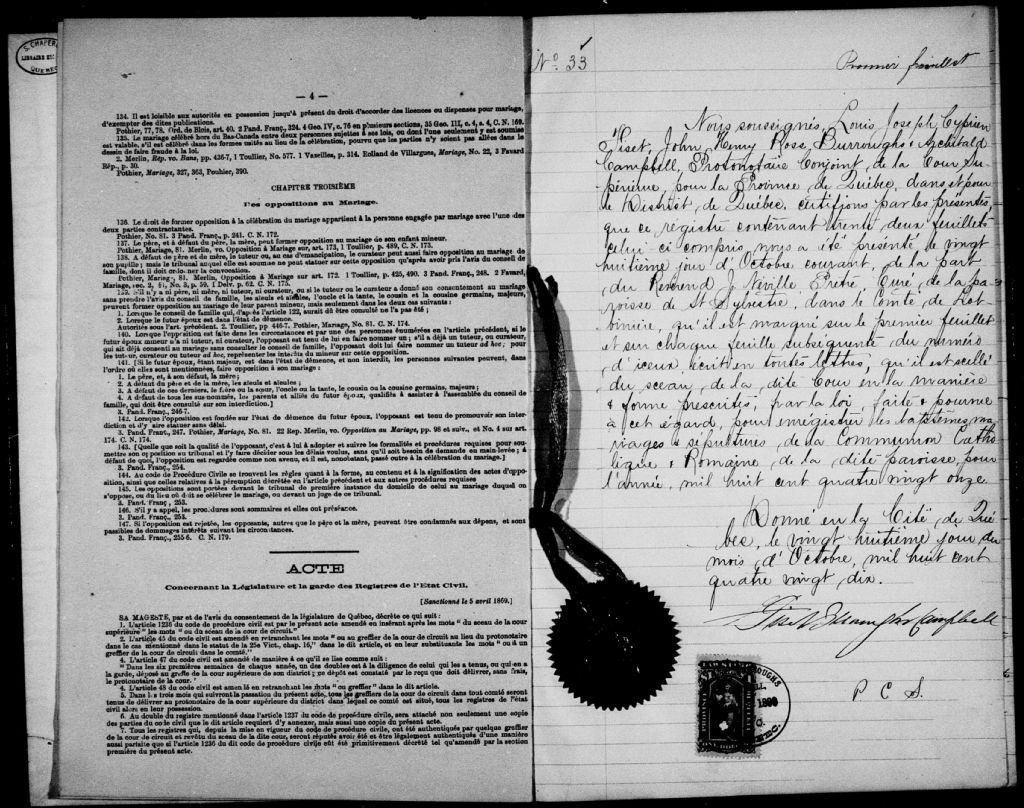 S. CHAPER
LIBRAIRE
QUEBEC
— 4 —
134. Il est loisible aux autorités en possession jusqu'à présent du droit d'accorder des licences ou dispenses pour mariage,
d'exempter des dites publications.
Pothier, 77, 78. Ord. de Blois, art. 40. 2 Pand. Franç., 324. 4 Geo. IV, c. 76 en plusieurs sections, 35 Geo. III, c. 4, s. 4, C. N. 169.
135. Le mariage célébré hors du Bas-Canada entre deux personnes sujettes à ses lois, ou dont l'une seulement y est soumise
est valable, s'il est célébré dans les formes usités au lieu de la célébration, pourvu que les parties n'y soient pas allées dans le
dessein de faire fraude à la loi.
2. Merlin, Rép. vo. Bans, pp. 436-7, 1 Toullier, No. 577. 1 Vazeilles, p. 314. Rolland de Villargues, Mariage, No. 22, 3 Favard
Rép., p. 30.
Pothier, Mariage, 327, 363, Pouhier, 390.
CHAPITRE TROISIÈME
Des oppositions au Mariage.
136. Le droit de former opposition à la célébration du mariage appartient à la personne engagée par mariage avec l'une des
deux parties contractantes.
Pothier, No. 81. 3 Pand. Franç., p. 241. C. N. 172.
137. Le père, et à défaut du père, la mère, peut former opposition au mariage de son enfant mineur.
Pothier, Mariage, 81. Merlin, vo. Opposition à Mariage, sur art. 173, 1 Toullier, p. 489, C. N. 173.
138. A défaut de père et de mère, le tuteur ou, au cas d'émancipation, le curateur peut aussi faire opposition au mariage de
son pupille; mais le tribunal auquel elle est soumise ne peut statuer sur cette opposition qu'après avoir pris l'avis du conseil de
famille, dont il doit ordonner la convocation.
Pothier, Mariage, 81. Merlin, Opposition à Mariage sur art. 172. 1 Toullier, p. 425, 490. 3 Pand. Franç., 248. 2 Favard,
Mariage, sec. 2, § 1, No. 3, p. 59. 1 Delv. p. 62. C. N. 175.
139. S'il n'y a ni père, ni mère, ni tuteur, ni curateur, ou si le tuteur ou le curateur a donné son consentement au mariage
sans prendre l'avis du conseil de famille, les aïeuls et aïeules, l'oncle et la tante, le cousin et la cousine germains, majeurs,
peuvent former opposition au mariage de leur parent mineur, mais seulement dans les deux cas suivants :
1. Lorsque le conseil de famille qui, d'après l'article 122, aurait dû être consulté ne l'a pas été ;
2. Lorsque le futur époux est dans l'état de démence.
Autorités sous l'art précédent. 2. Toullier, pp 446-7. Pothier, Mariage, No. 81. C. N. 174.
140. Lorsque l'opposition est faite dans les circonstances et par une des personnes énumérées en l'article précédent, si le
futur époux mineur n'a ni tuteur, ni curateur, l'opposant est tenu de lui en faire nommer un; s'il a déjà un tuteur, ou curateur,
qui ait déjà consenti au mariage sans consulter le conseil de famille, l'opposant doit lui faire nommer un tuteur ad hoc; pour
les tuteur, curateur ou tuteur ad hoc, représenter les intérêts du mineur sur cette opposition.
141. [Si le futur époux, étant majeur, est dans l'état de démence, et non interdit, les personnes suivantes peuvent, dans
l'ordre où elles sont mentionnées, faire opposition à son mariage :
1. Le père, et, à son défaut, la mère ;
2. A défaut du père et de la mère, les aïeuls et aïeules ;
3. A défaut de ces derniers, le frère ou la sœur, l'oncle ou la tante, le cousin ou la cousine germains, majeurs ;
4. A défaut de tous les sus-nommés, les parents et alliés du futur époux, qualifiés à assister à l'assemblée du conseil de
famille, qui doit être consulté sur son interdiction.]
3. Pand. Franç., 246-7.
142. Lorsque l'opposition est fondée sur l'état de démence du futur époux, l'opposant est tenu de promouvoir son inter-
diction et d'y aire statuer sans délai.
3. Pand. Franç., 247. Pothier, Mariage, No. 81. 22 Rep. Merlin, vo. Opposition au Mariage, pp. 98 et suiv., et No. 4 sur art.
174. C. N. 174.
143. [Quelle que soit la qualité de l'opposant, c'est à lui à adopter et suivre les formalités et procédures requises pour sou-
mettre son opposition au tribunal et l'y faire décider sous les délais voulus, sans qu'il soit besoin de demande en main-levée; à
défaut de quoi, l'opposition est regardée comme non avenu, et il est, nonobstant, passé outre à la célébration du mariage.]
3. Pand. Franç., 254.
144. Au code de Procédure Civile se trouvent les règles quant à la forme, au contenu et à la signification des actes d'oppo-
sition, ainsi que celles relatives à la péremption décrétée en l'article précédent et aux autres procédures requises
145. Les oppositions sont portées devant le tribunal de première instance du domicile de celui au mariage duquel on
s'oppose, ou du lieu où doit se célébrer le mariage, ou devant un juge de ce tribunal.
3. Pand. Franç., 253.
146. S'il y a appel, les procédures sont sommaires et elles ont préséance.
3. Pand. Franç., 253.
147. Si l'opposition est rejetée, les opposants, autres que le père et la mère, peuvent être condamnés aux dépens, et sont
passibles de dommages intérêts suivant les circonstances.
3. Pand. Franç., 255-6. C. N. 179.
ACTE
Concernant la Législature et la garde des Registres de l'Etat Civil.
[Sanctionné le 5 avril 1869.]
SA MAGESTE, par et de l'avis du consentement de la législature de Québec, décrète ce qui suit :
1. L'article 1236 du code de procédure civil est par le présent acte amendé en insérant après les mots "du sceau de la cour
supérieure" les mots "ou du sceau de la cour de circuit."
2. L'article 45 du code civil est amendé en retranchant les mots "ou au greffier de la cour de circuit au lieu du protonotaire
dans le cas mentionné dans le statut de la 25e Vict., chap. 16," dans le dit article, et en leur substituant les mots "ou à un
greffier de la cour de circuit dans le comté."
4. L'article 47 du code civil est amendé de manière à ce qu'il se lise comme suit :
"Dans les six premières semaines de chaque année, un des doubles est à la diligence de celui qui les a tenus, ou qui en a
la garde, déposé au greffe de la cour supérieure de son district; ce dépôt est constaté par le reçu que doit délivrer, sans frais,
le protonotaire de la cour."
4. L'article 48 du code civil est amendé en retranchant les mots "ou greffier" dans le dit article.
5. Dans les trois mois qui suivront la passation du présent acte, tous les greffiers de la cour de circuit dans tout comté seront
tenus de délivrer au protonotaire de la cour supérieure du district dans lequel ce comté est situé, tous les registres de l'état
civil alors en leur possession.
6. Au double du registre mentionné dans l'article 1237 du code de procédure civile, sera attaché non seulement une copie
des parties du code civil que le dit article requiert d'y annexer, mais aussi une copie du présent acte.
7. Tous les registres qui, depuis la mise en vigueur du code de procédure civile, ont été authentiqués par quelque greffier
de la cour de circuit et revêtu du sceau de la dite cour, seront réputés avoir été et être légalement authentiqués d'une manière
aussi parfaite que si l'article 1236 du dit code de procédure civile eût été primitivement décrété tel qu'amendé par la section
première du présent acte.
No. 33
Premier feuillet
Nous soussignés, Louis Joseph Cyprien
Fiset, John Henry Ross Burroughs & Archibald
Campbell, Protonotaire Conjoint, de la Cour Su-
périeure, pour la Province de Québec, dans et pour
le District, de Québec, certifions par les présentes,
que ce registre contenant trente deux feuillets
celui-ci compris, nous a été présenté le vingt
huitième jour d'Octobre courant, de la part
du Révérend J. Neville Prêtre, Curé, de la pa-
roisse de St Sylvestre, dans le Comté de Lot-
binière, qu'il est marqué sur le premier feuillet
et sur chaque feuille subséquente du numéro
d'iceux écrit en toutes lettres, qu'il est scellé
du sceau de la dite Cour en la manière
& forme prescrites, par la loi faite & pourvue
à cet égard, pour enrégistrer les baptêmes, ma-
riages & sépultures, de la Communion Catho-
lique & Romaine de la dite paroisse, pour
l'année, mil huit cent quatre vingt onze
Donné en la Cité, de Qué
bec, le vingt huitième jour du
mois, d'Octobre, mil huit cent
quatre vingt dix.
Fiset Burroughs Campbell
P. C. S.